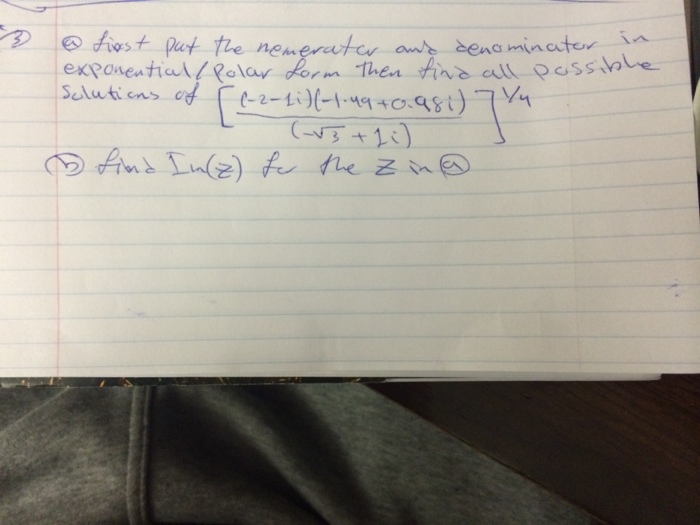 3 ⓐ first put the nemerator and denominator in
exponential/Polar form then find all possible
Solutions of [(-2-1i)(-1.49+0.98i) / (-√3+1i)]^1/4
ⓑ find In(z) for the z in ⓐ